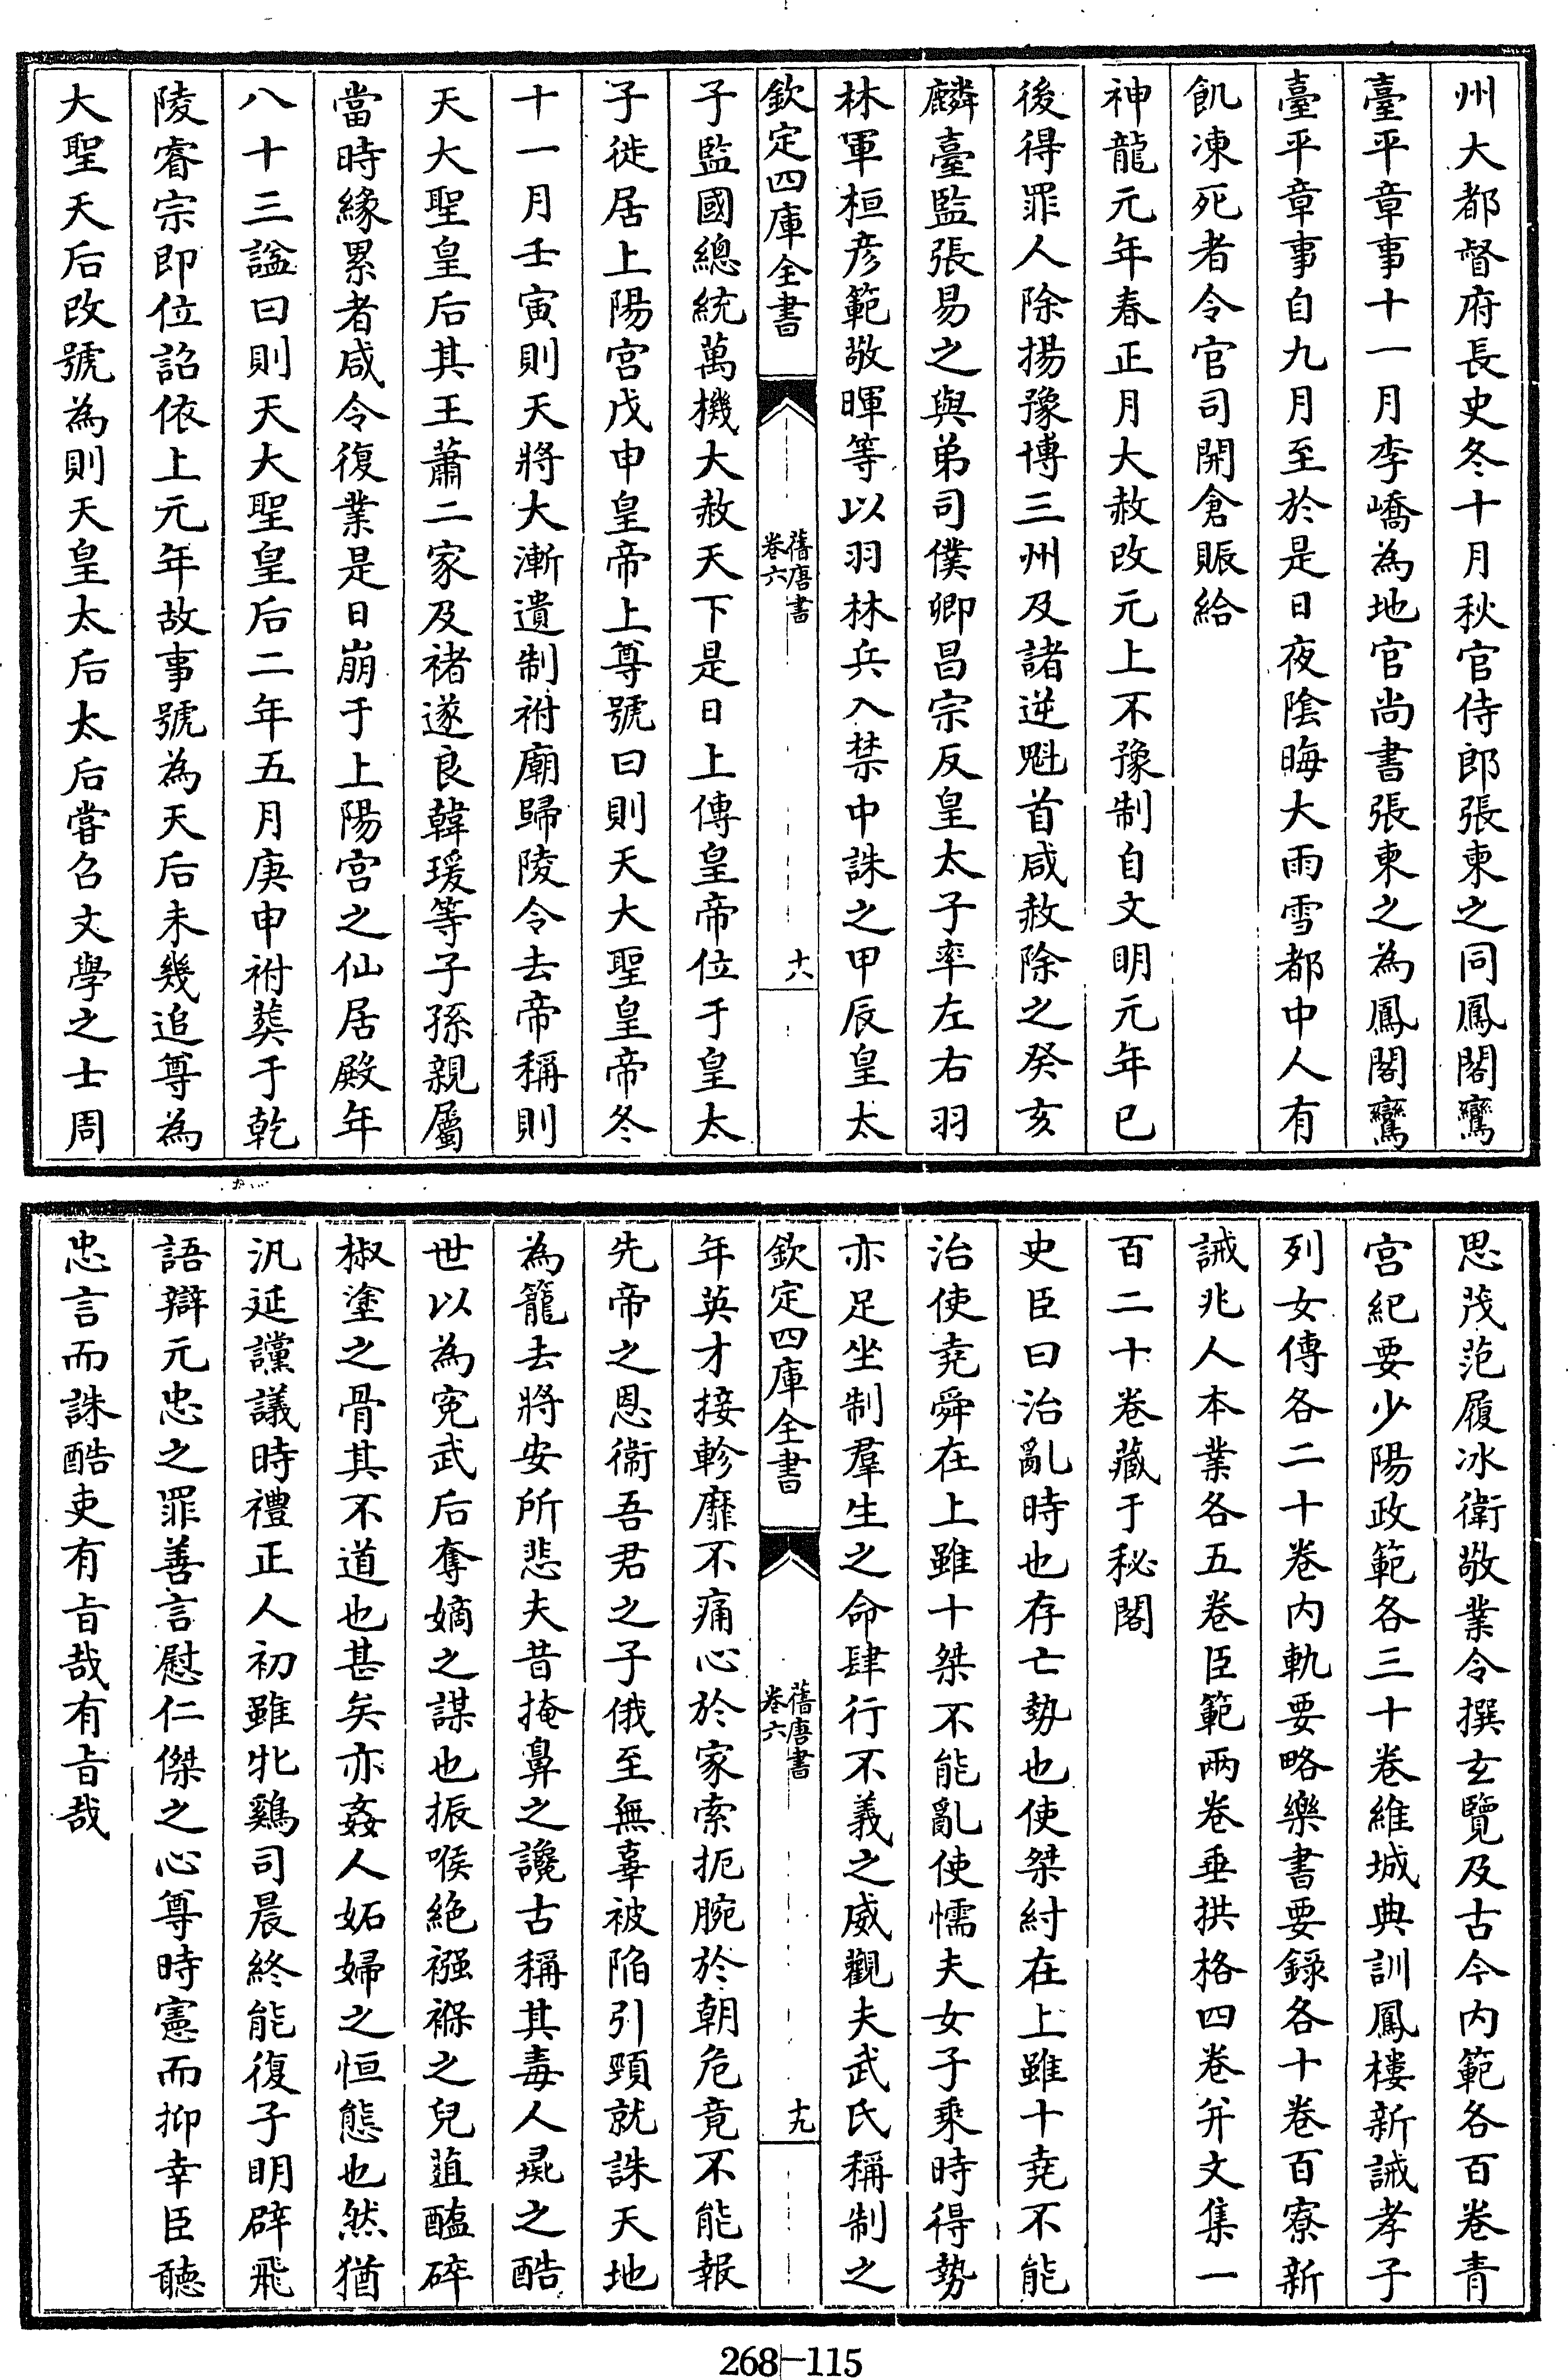 州大都督府長史冬十月秋官侍郎張柬之同鳳閣鸞
臺平章事十一月李嶠為地官尚書張柬之為鳳閣鸞
臺平章事自九月至於是日夜陰晦大雨雪都中人有
飢凍死者令官司開倉賑給
神龍元年春正月大赦改元上不豫制自文明元年已
後得罪人除揚豫博三州及諸逆魁首咸赦除之癸亥
麟臺監張易之與弟司僕卿昌宗反皇太子率左右羽
林軍桓彥範敬暉等以羽林兵入禁中誅之甲辰皇太
欽定四庫全書
舊唐書
卷六
十八
子監國總統萬機大赦天下是日上傳皇帝位于皇太
子徙居上陽宮戊申皇帝上尊號曰則天大聖皇帝冬
十一月壬寅則天將大漸遺制祔廟歸陵令去帝稱則
天大聖皇后其王蕭二家及褚遂良韓瑗等子孫親屬
當時緣累者咸令復業是日崩于上陽宮之仙居殿年
八十三諡曰則天大聖皇后二年五月庚申祔葬于乾
陵睿宗即位詔依上元年故事號為天后未幾追尊為
大聖天后改號為則天皇太后太后嘗召文學之士周
思茂范履冰衛敬業令撰玄覽及古今內範各百卷青
宮紀要少陽政範各三十卷維城典訓鳳樓新誡孝子
列女傳各二十卷內軌要略樂書要錄各十卷百寮新
誡兆人本業各五卷臣範兩卷垂拱格四卷并文集一
百二十卷藏于秘閣
史臣曰治亂時也存亡勢也使桀紂在上雖十堯不能
治使堯舜在上雖十桀不能亂使懦夫女子乘時得勢
亦足坐制羣生之命肆行不義之威觀夫武氏稱制之
欽定四庫全書
舊唐書
卷六
十九
年英才接軫靡不痛心於家索扼腕於朝危竟不能報
先帝之恩衞吾君之子俄至無辜被陷引頸就誅天地
為籠去將安所悲夫昔掩鼻之讒古稱其毒人彘之酷
世以為冤武后奪嫡之謀也振喉絕襁褓之兒葅醢碎
椒塗之骨其不道也甚矣亦姦人妬婦之恒態也然猶
汎延讜議時禮正人初雖牝鷄司晨終能復子明辟飛
語辯元忠之罪善言慰仁傑之心尊時憲而抑幸臣聽
忠言而誅酷吏有旨哉有旨哉
268-115